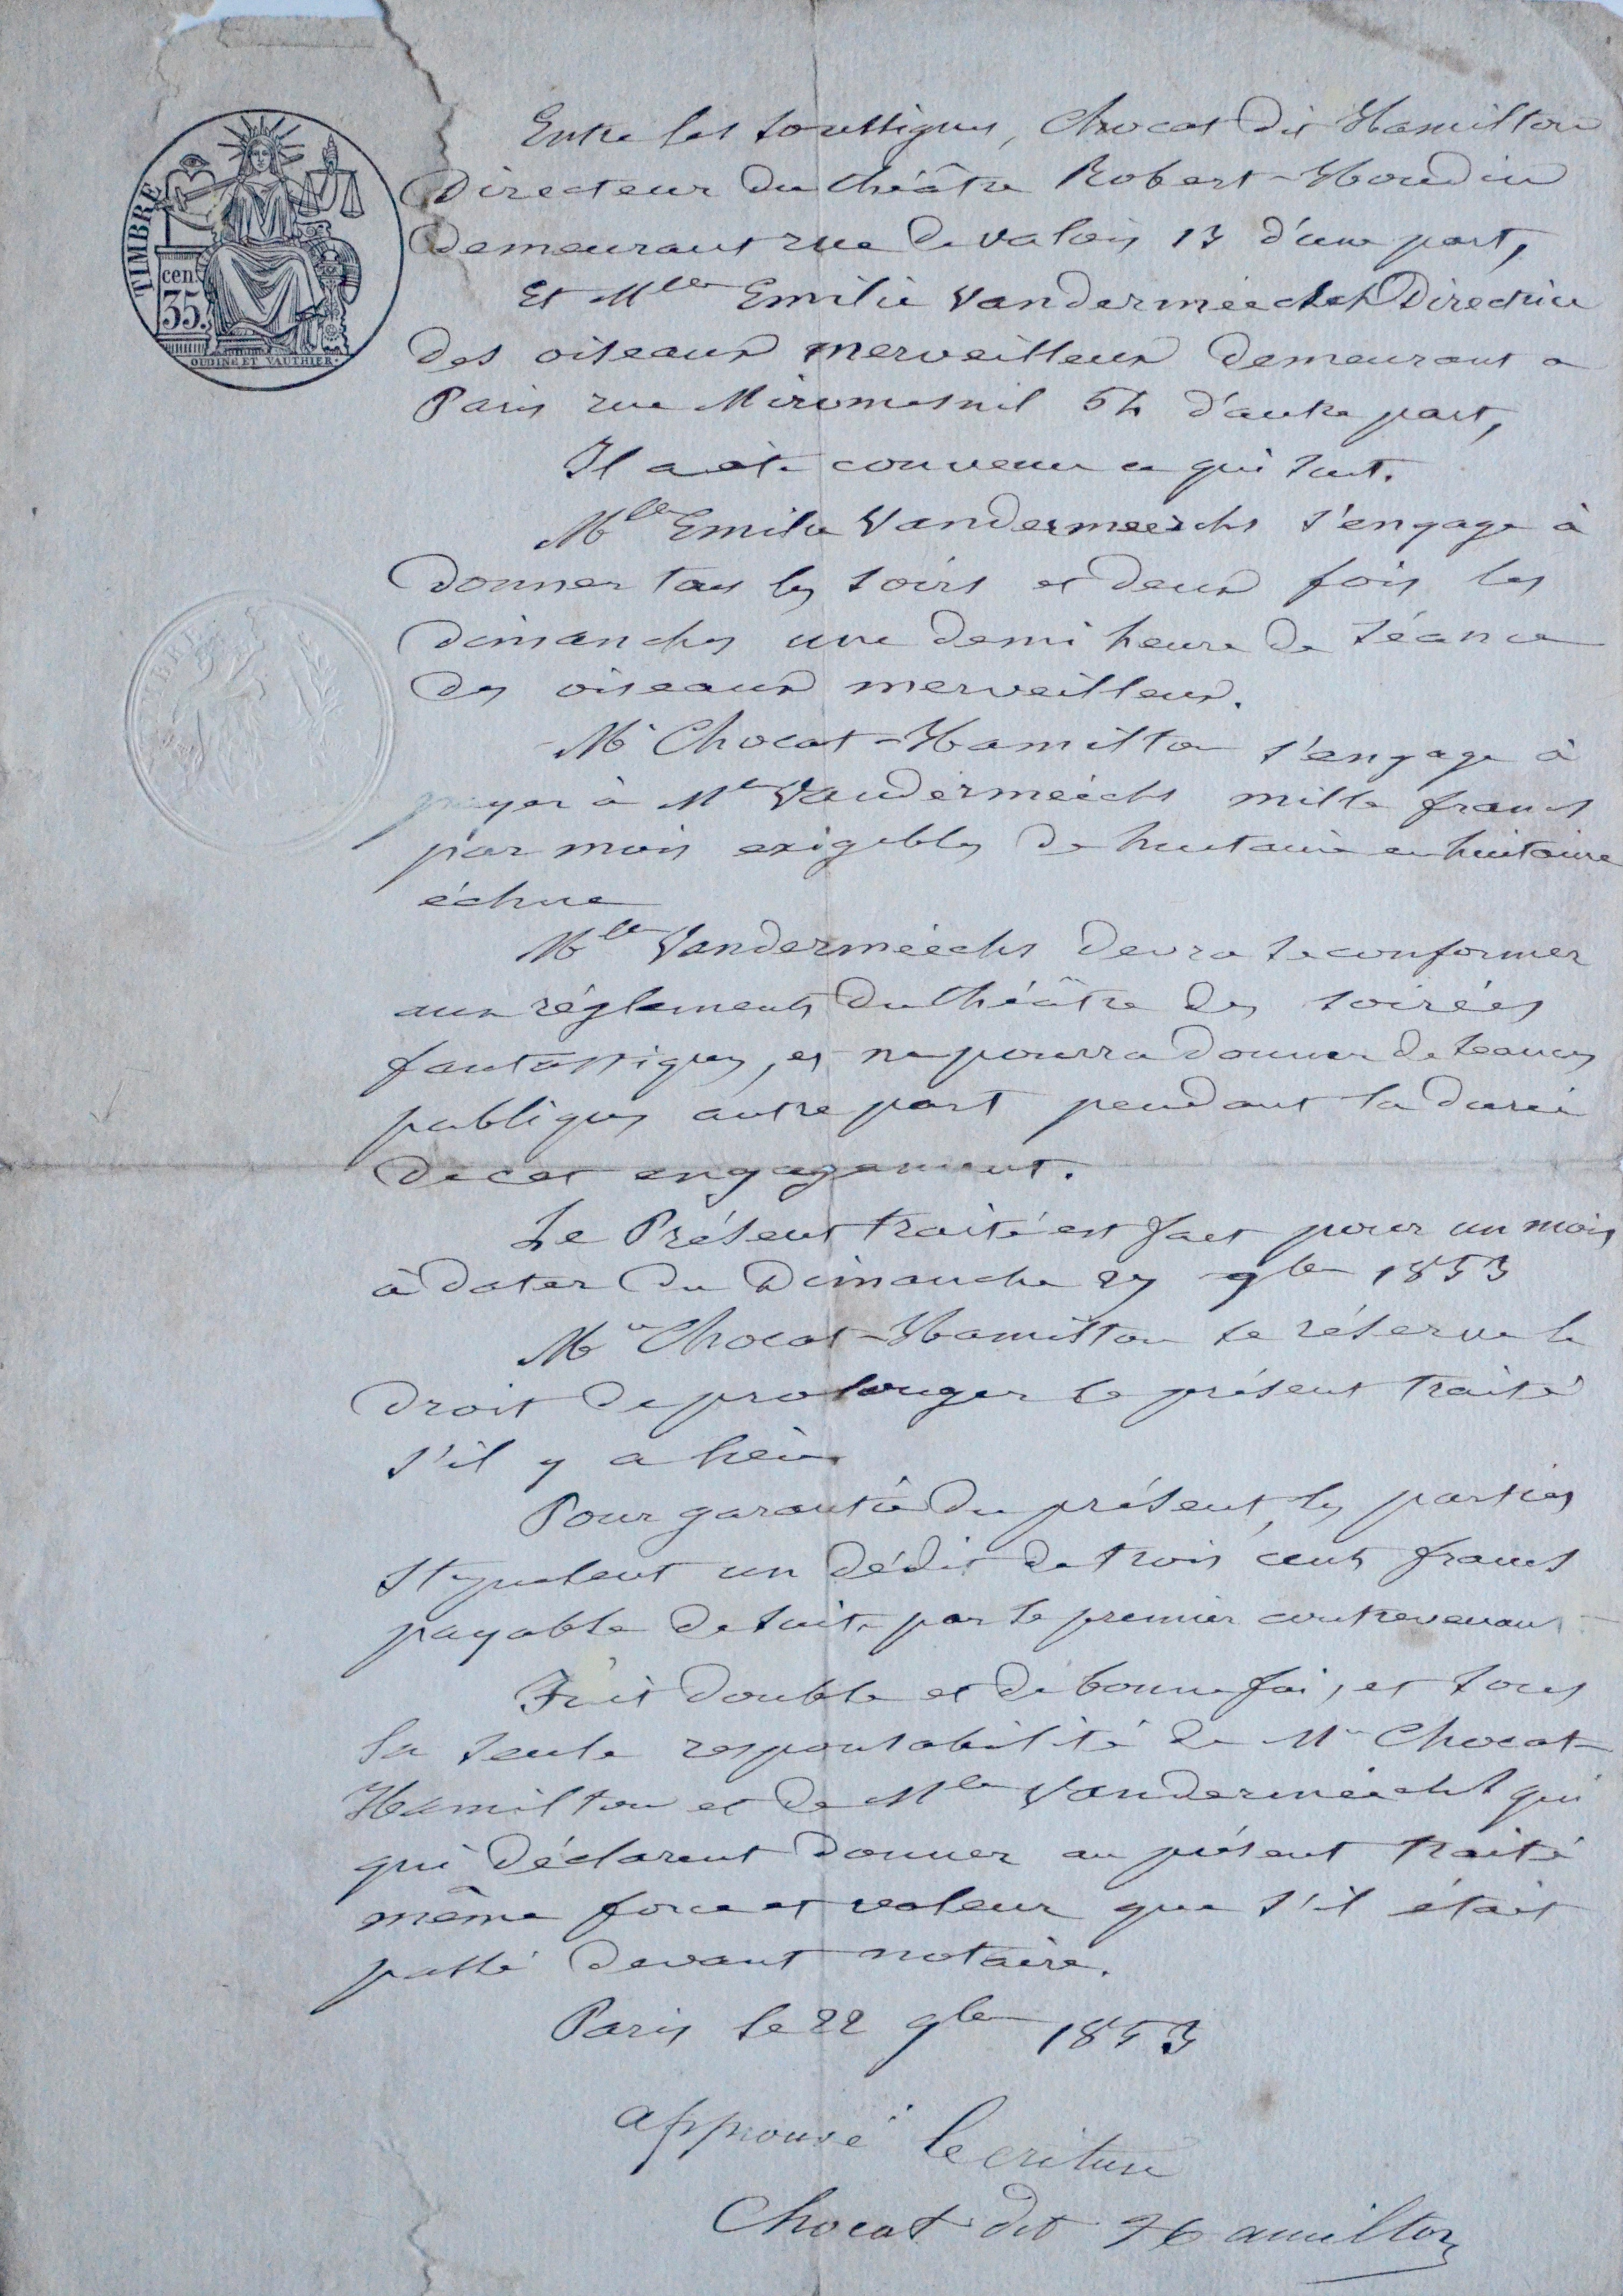 TIMBRE
cen.
35.
OUDINÉ ET VAUTHIER.
Entre les soussignés, Chocat dit Hamilton
Directeur du théâtre Robert-Houdin
demeurant rue de valois 13 d'une part,
Et Mlle Emilie Vandermeersch Directrice
des oiseaux merveilleux demeurant a
Paris rue Miromesnil d'autre part,
Il a été convenu ce qui suit.
Mlle Emilie Vandermeerchs s'engage à
donner tous les soirs et deux fois les
dimanches une demi heure de séance
des oiseaux merveilleux.
Mr Chocat-Hamilton s'engage à
payer à Mlle Vandermeéchs mille francs
par mois exigibles de huitaine en huitaine
échue
Mlle Vanderméechs devra se conformer
aux réglements du théâtre des soirées
fantastiques, et ne pourra donner de séances
publiques autre part pendant la durée
de cet engagement.
Le Présent traité est fait pour un mois
à dater du Dimanche 27 9bre 1853
Mr Chocat-Hamilton se réserve le
droit de prolonger le présent traité
s'il y a lieu
Pour garantie du présent, les parties
stipulent un dédit de trois cents francs
payable de suite par le premier contrevenant
Fait double et de bonne foi, et sous
la seule responsabilité de Mr Chocat-
Hamilton et de Mlle Vanderméechs qui
qui déclarent donner au présent traité
même force et valeur que s'il était
passé devant notaire.
Paris le 22 9bre 1853
approuvé lecriture
Chocat dit Hamilton